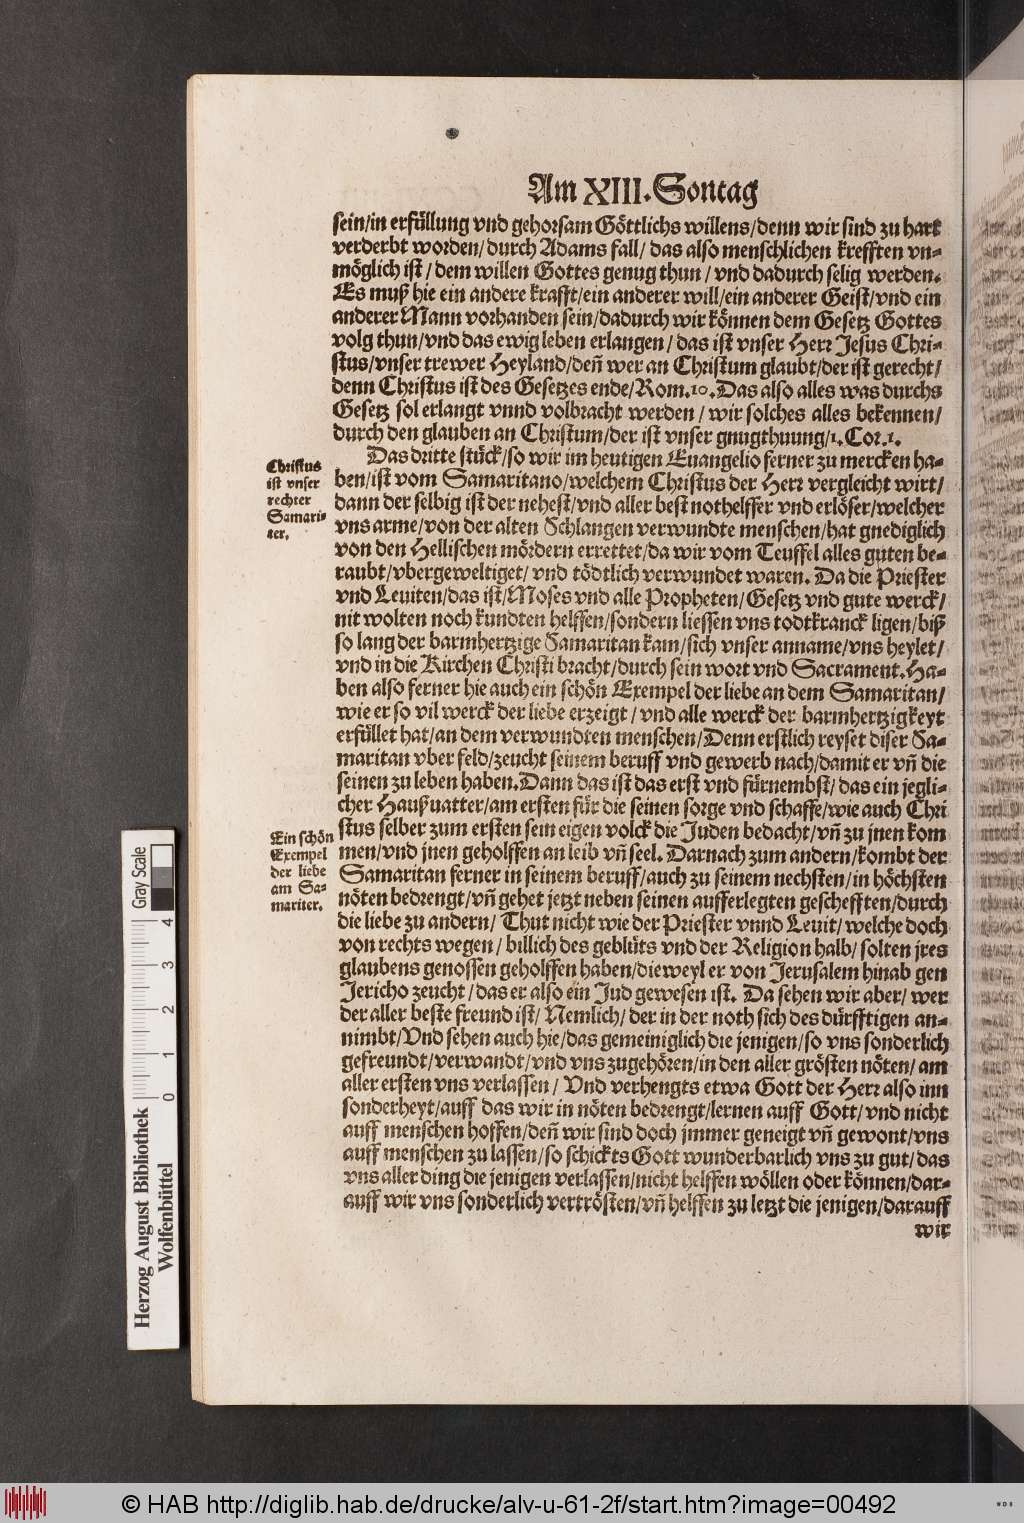 Am XIII. Sontag
sein/in erfüllung vnd gehorsam Göttlichs willens/denn wir sind zu hart
verderbt worden/durch Adams fall/ das also menschlichen krefften vn-
möglich ist/ dem willen Gottes genug thun/ vnd dadurch selig werden.
Es muß hie ein andere krafft/ein anderer will/ein anderer Geist/vnd ein
anderer Mann vorhanden sein/dadurch wir können dem Gesetz Gottes
volg thun/vnd das ewig leben erlangen/ das ist vnser Herr Jesus Chri-
stus/vnser trewer Heyland/den̄ wer an Christum glaubt/der ist gerecht/
denn Christus ist des Gesetzes ende/Rom.10. Das also alles was durchs
Gesetz sol erlangt vnnd volbracht werden/ wir solches alles bekennen/
durch den glauben an Christum/der ist vnser gnugthuung/1. Cor.1.
Das dritte stück/so wir im heutigen Euangelio ferner zu mercken ha-
ben/ist vom Samaritano/welchem Christus der Herr vergleicht wirt/
dann der selbig ist der nehest/vnd aller best nothelffer vnd erlöser/welcher
vns arme/von der alten Schlangen verwundte menschen/hat gnediglich
von den Hellischen mördern errettet/da wir vom Teuffel alles guten be-
raubt/vbergeweltiget/ vnd tödtlich verwundet waren. Da die Priester
vnd Leuiten/das ist/Moses vnd alle Propheten/Gesetz vnd gute werck/
nit wolten noch kundten helffen/sondern liessen vns todtkranck ligen/biß
so lang der barmhertzige Samaritan kam/sich vnser anname/vns heylet/
vnd in die Kirchen Christi bracht/durch sein wort vnd Sacrament. Ha-
ben also ferner hie auch ein schön Exempel der liebe an dem Samaritan/
wie er so vil werck der liebe erzeigt/ vnd alle werck der barmhertzigkeyt
erfüllet hat/an dem verwundten menschen/Denn erstlich reyset diser Sa-
maritan vber feld/zeucht seinem beruff vnd gewerb nach/damit er vn̄ die
seinen zu leben haben. Dann das ist das erst vnd fürnembst/ das ein jegli-
cher Haußuatter/am ersten für die seinen sorge vnd schaffe/wie auch Chri
stus selber zum ersten sein eigen volck die Juden bedacht/vn̄ zu jnen kom
men/vnd jnen geholffen an leib vn̄ seel. Darnach zum andern/kombt der
Samaritan ferner in seinem beruff/auch zu seinem nechsten/in höchsten
nöten bedrengt/vn̄ gehet jetzt neben seinen aufferlegten gescheffften/durch
die liebe zu andern/ Thut nicht wie der Priester vnnd Leuit/welche doch
von rechts wegen/ billich des geblüts vnd der Religion halb/ solten jres
glaubens genossen geholffen haben/dieweyl er von Jerusalem hinab gen
Jericho zeucht/das er also ein Jud gewesen ist. Da sehen wir aber/ wer
der aller beste freund ist/ Nemlich/ der in der noth sich des dürfftigen an-
nimbt/Vnd sehen auch hie/das gemeiniglich die jenigen/so vns sonderlich
gefreundt/verwandt/vnd vns zugehören/in den aller grösten nöten/ am
aller ersten vns verlassen/ Vnd verhengts etwa Gott der Herr also inn
sonderheyt/auff das wir in nöten bedrengt/lernen auff Gott/vnd nicht
auff menschen hoffen/den̄ wir sind doch jmmer geneigt vn̄ gewont/vns
auff menschen zu lassen/so schickts Gott wunderbarlich vns zu gut/ das
vns aller ding die jenigen verlassen/nicht helffen wöllen oder können/dar-
auff wir vns sonderlich vertrösten/vn̄ helffen zu letzt die jenigen/darauff
wir
Christus
ist vnser
rechter
Samari-
ter.
Ein schön
Exempel
der liebe
am Sa-
mariter.
Gray Scale
0 1 2 3 4
Herzog August Bibliothek
Wolfenbüttel
© HAB http://diglib.hab.de/drucke/alv-u-61-2f/start.htm?image=00492